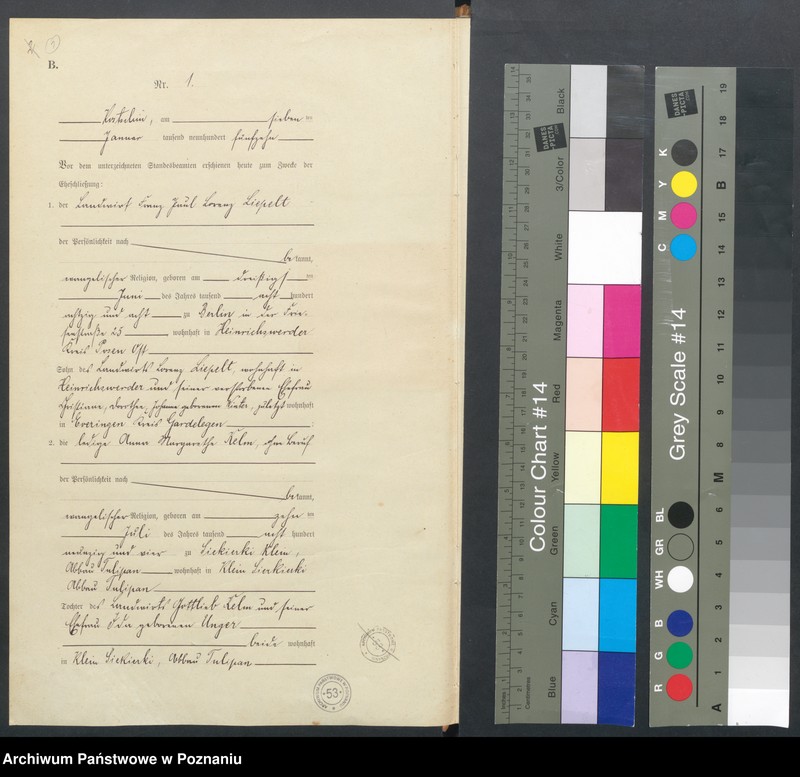 B.
Nr. 1.
Kostschin, am sieben ten
Januar tausend neunhundert fünfzehn
Vor dem unterzeichneten Standesbeamten erschienen heute zum Zwecke der
Eheschließung:
1. der Landwirt Franz Paul Lorenz Liepelt
der Persönlichkeit nach
be kannt,
evangelischer Religion, geboren am dreißigsten
Juni des Jahres tausend acht hundert
achtzig und acht zu Berlin in der
straße 25 wohnhaft in Heinrichswerder
Kreis Posen Ost
Sohn des Landwirts Lorenz Liepelt, wohnhaft in
Heinrichswerder und seiner verstorbenen Ehefrau
Christiane, Dorothee, Johanne geborenen zuletzt wohnhaft
in Everingen Kreis Gardelegen
2. die ledige Anna Margarethe Kelm, ohne Beruf
der Persönlichkeit nach
be kannt,
evangelischer Religion, geboren am zehn ten
Juli des Jahres tausend acht hundert
neunzig und vier zu Siekierki Klein,
Abbau Tulipan wohnhaft in Klein Siekierki
Abbau Tulipan
Tochter des Landwirts Gottlieb Kelm und seiner
Ehefrau Ida geborenen Unger
beide wohnhaft
in Klein Siekierki, Abbau Tulipan
53
Colour Chart #14
Black
3/Color
White
Magenta
Red
Yellow
Green
Cyan
Blue
Inches
Centimetres
DANES
PICTA
.COM
Grey Scale #14
DANES
PICTA
.COM
C M Y K
WH GR BL
R G B
A 1 2 3 4 5 6 M 8 9 10 11 12 13 14 15 B 17 18 19
Archiwum Państwowe w Poznaniu